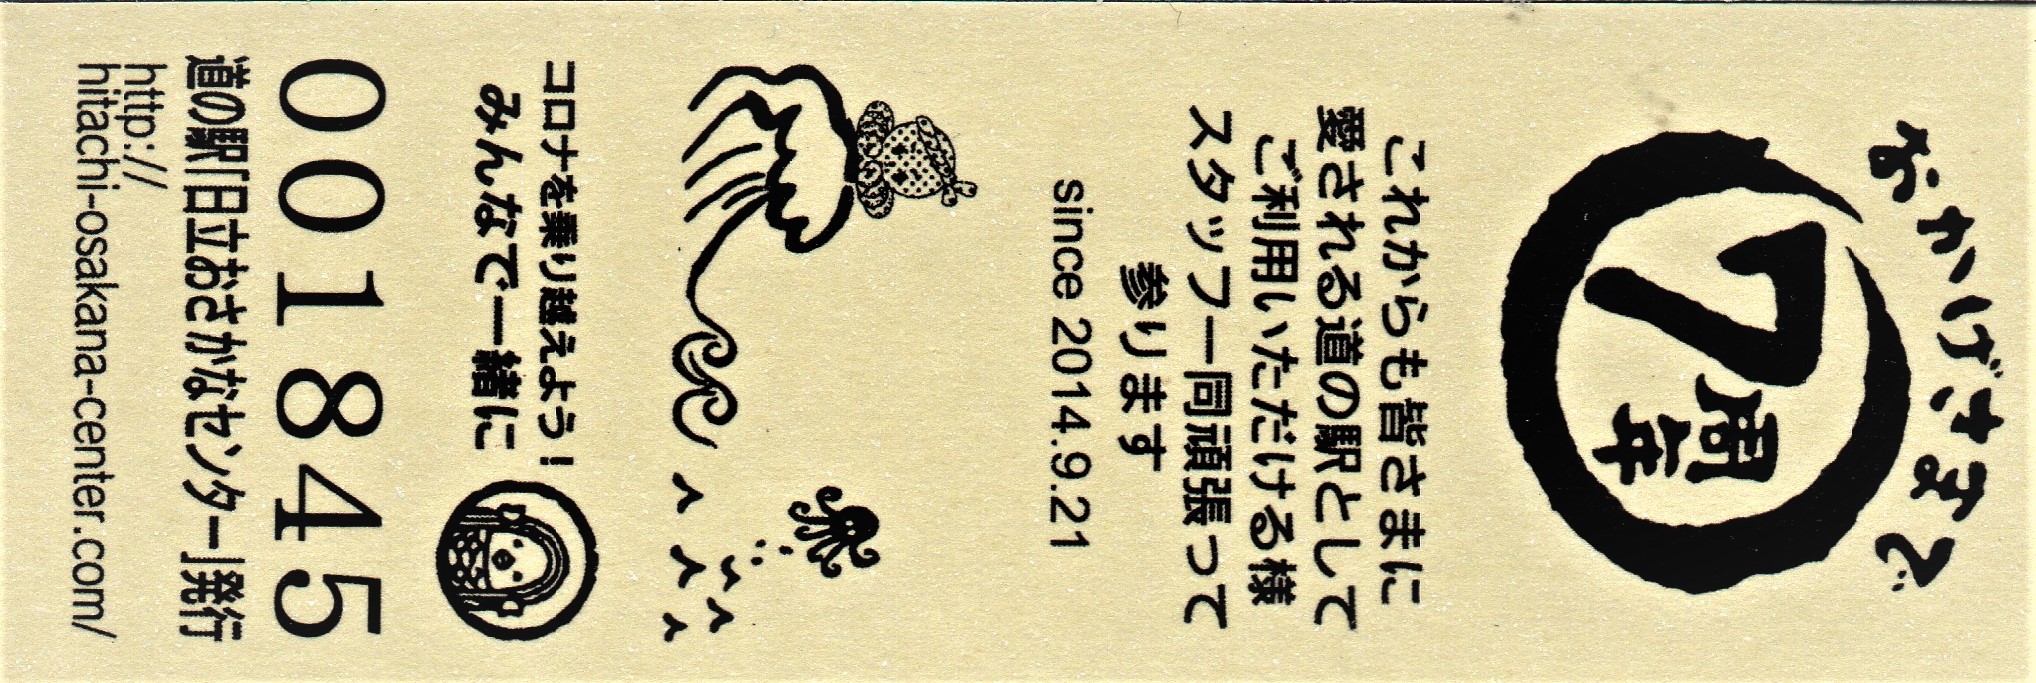 おかげさまで
7
周年
これからも皆さまに
愛される道の駅として
ご利用いただける様
スタッフ一同頑張って
参ります
since 2014.9.21
コロナを乗り越えよう!
みんなで一緒に
001845
道の駅「日立おさかなセンター」発行
http://
hitachi-osakana-center.com/